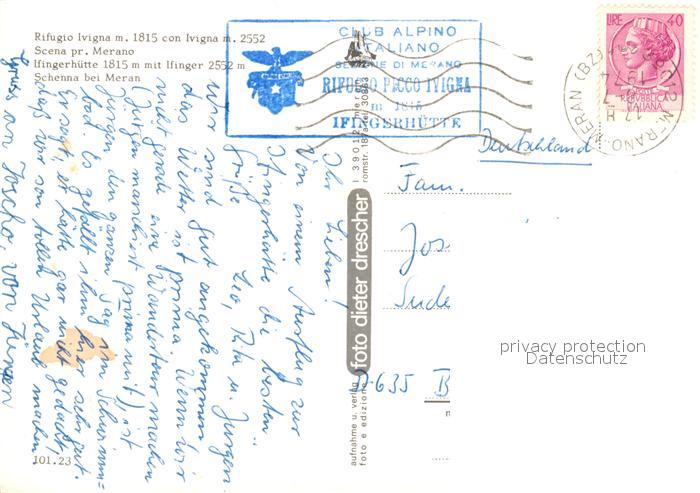 Rifugio Ivigna m. 1815 con Ivigna m. 2552
Scena pr. Merano
Ifingerhütte 1815 m mit Ifinger 2552 m
Schenna bei Meran
CLUB ALPINO
ITALIANO
SEZIONE DI MERANO
RIFUGIO PACCO IVIGNA
m 1815
IFINGERHÜTTE
LIRE 40
REPUBBLICA
ITALIANA
MERANO MERAN (BZ)
Deutschland
Fam.
Jos
Sude
D-635 B
Ihr Lieben!
Von einem Ausflug zur
Ifingerhütte die besten
Grüße Leo, Rita u. Jürgen
Wir sind gut angekommen
das Wetter ist prima. Wenn wir
nicht gerade eine Wandertour machen
(Jürgen marschiert prima mit), ist
Jürgen den ganzen Tag im Schwimm=
bad. Es gefällt ihm hier sehr gut.
Er sagt, er hätte gar nicht gedacht,
daß wir so'n tollen Urlaub machen.
Gruss an Joscha, von Jürgen
foto dieter drescher
aufnahme u. verlag
foto e edizione
101.23
privacy protection
Datenschutz